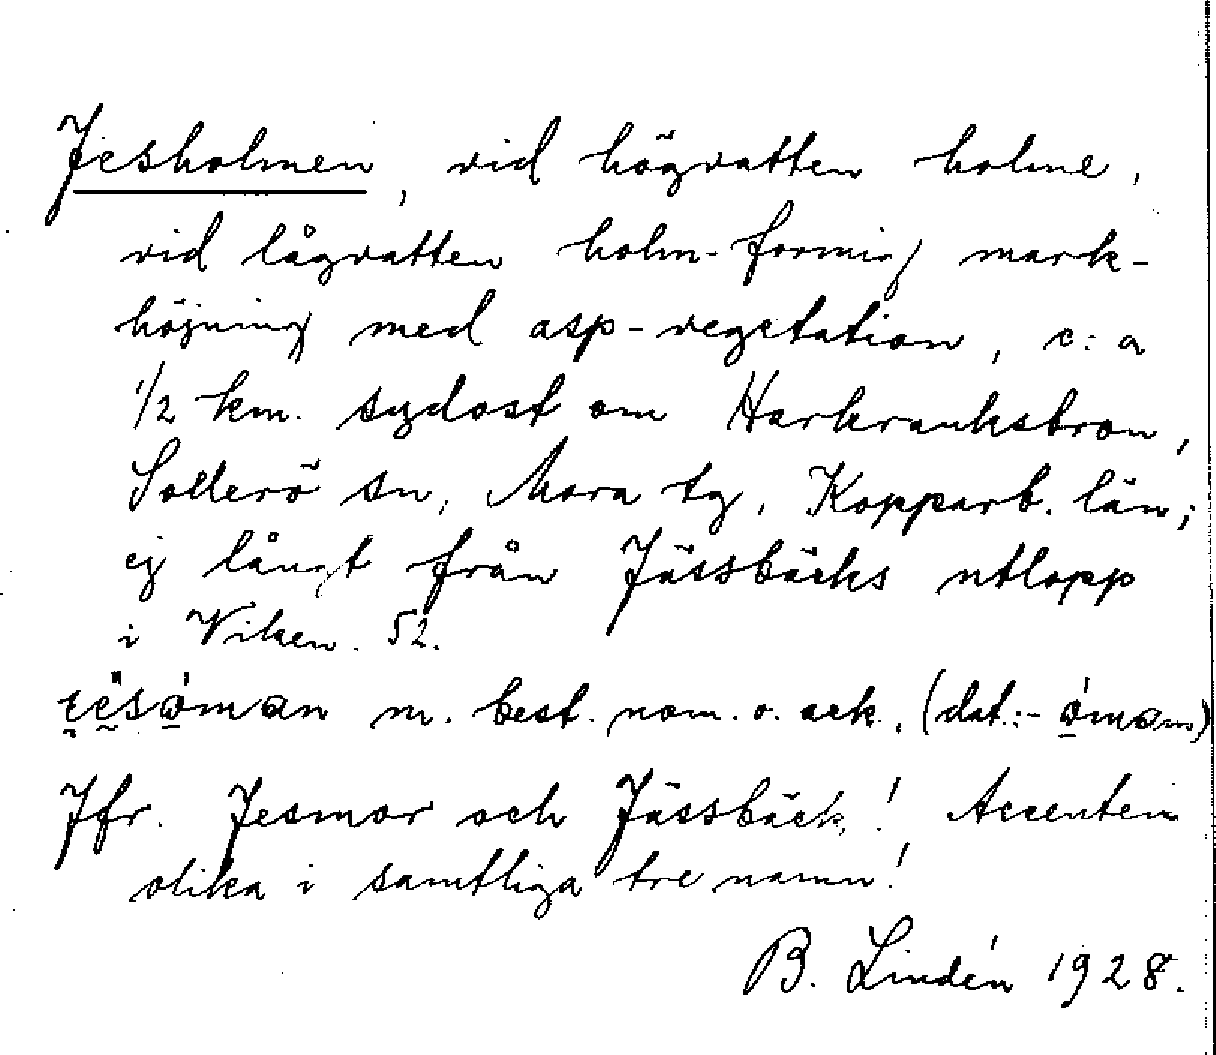 Jesholmen, vid högvatten holme,
vid lågvatten holm-formig mark-
höjning med asp-vegetation, c:a
1/2 km. sydost om Harkranksbron,
Sollerö sn, Mora tg, Kopparb. län;
ej långt från Jässbäcks utlopp
i Viken. 52.
m. best. nom. o. ack. (dat.:-
Jfr. Jesmor och Jässbäck! Accenten
olika i samtliga tre namn!
B. Lindén 1928.